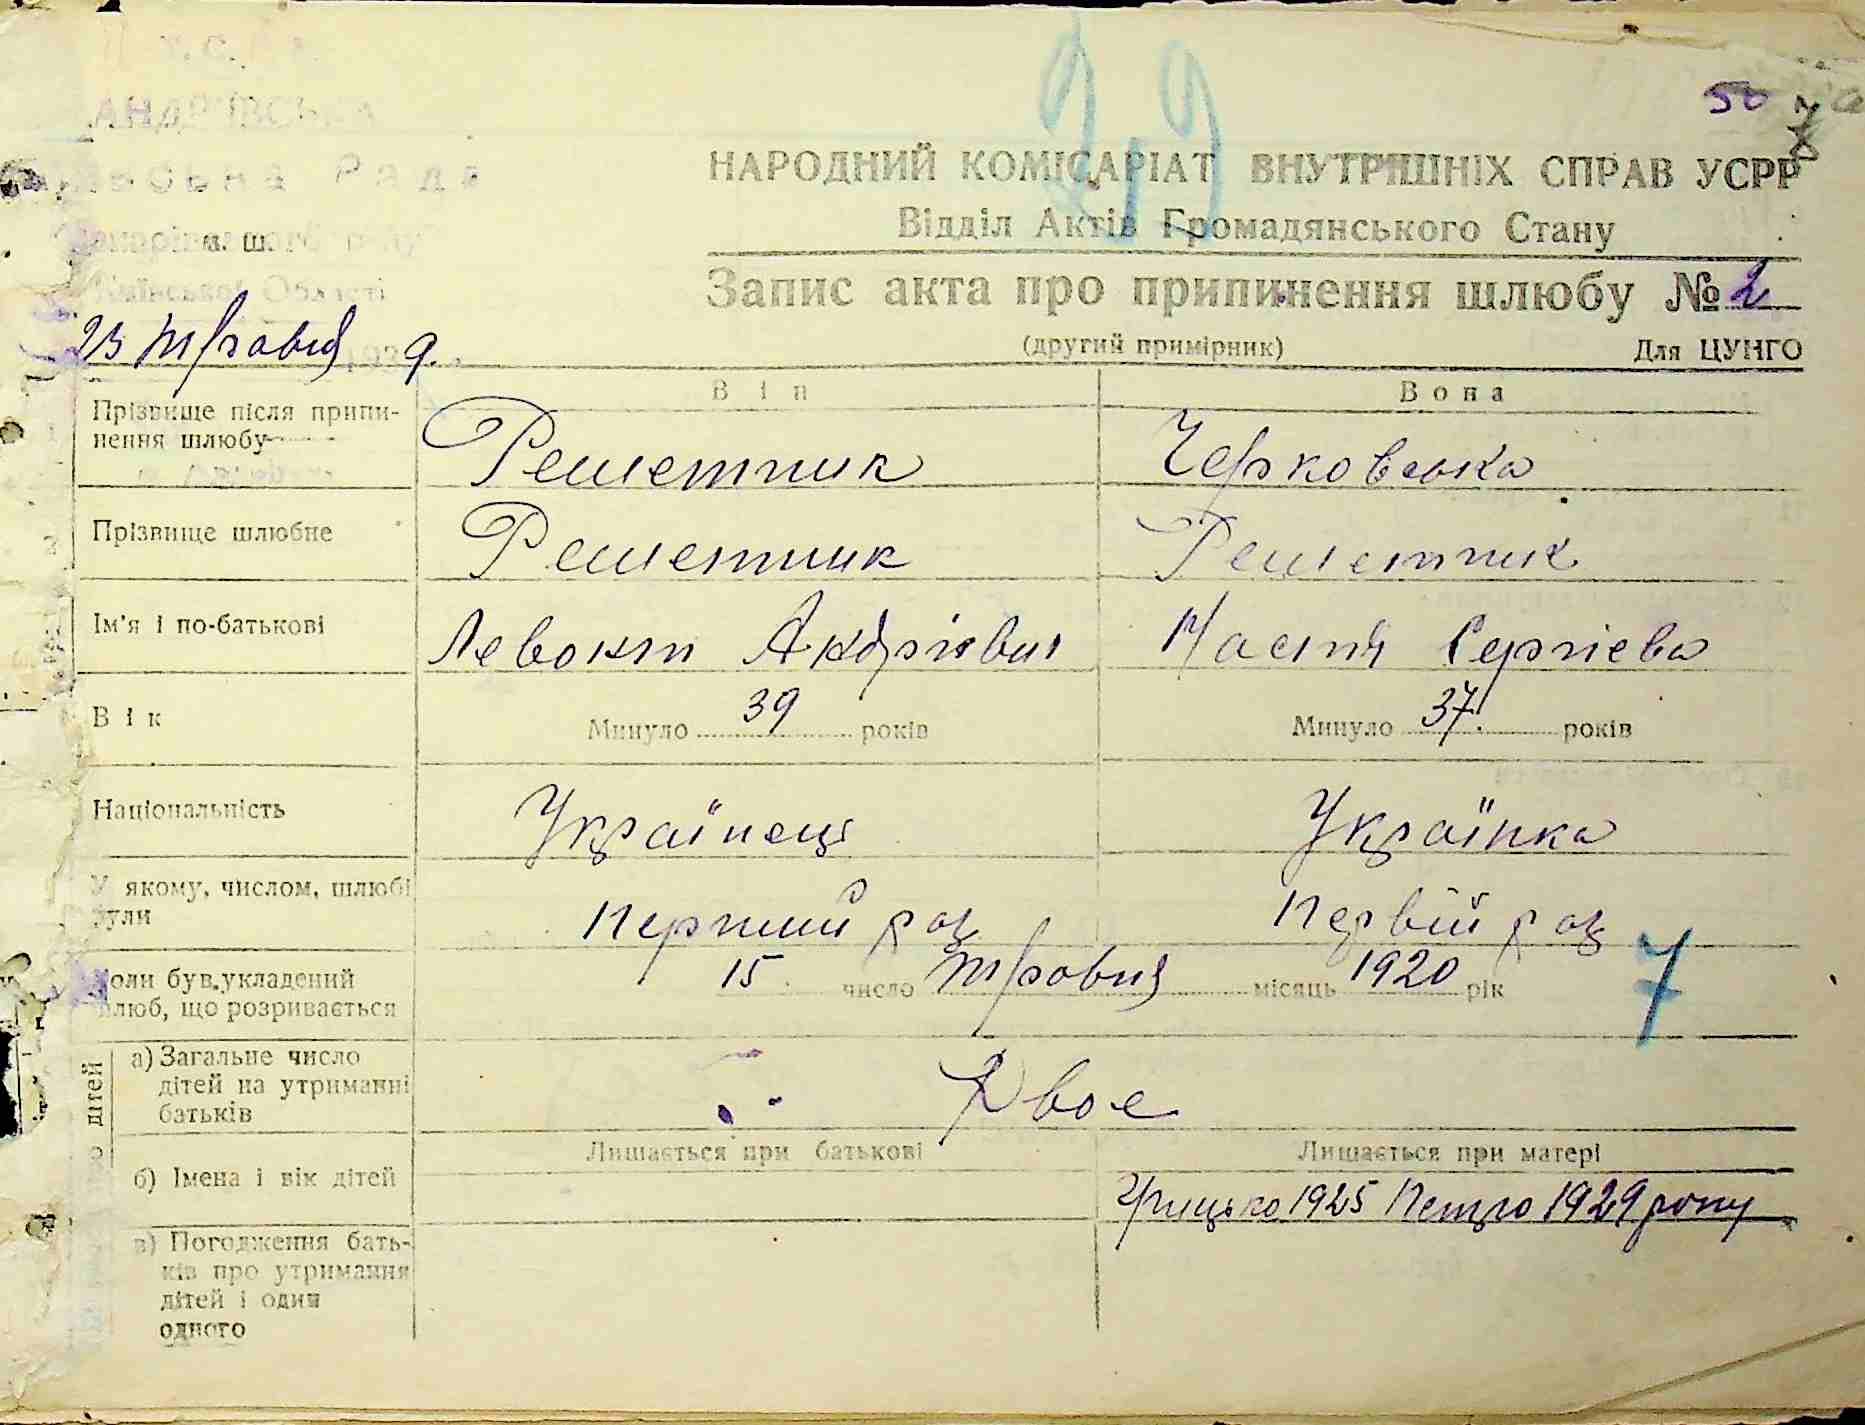 АНДРІЇВСЬКА
Рада
Київської Області
50
НАРОДНИЙ КОМІСАРІАТ ВНУТРІШНІХ СПРАВ УСРР
Відділ Актів Громадянського Стану
Запис акта про припинення шлюбу № 2
23 Травня 1939.
(другий примірник) Для ЦУНГО
Він Вона
Прізвище після припи-
нення шлюбу
Решетник Черковська
Прізвище шлюбне Решетник Решетник
Ім'я і по-батькові Левонт Андрієвич Настя Сергієва
Вік Минуло 39 років Минуло 37 років
Національність Українець Українка
У якому, числом, шлюбі
були
Перший раз Первій раз
Коли був укладений
шлюб, що розривається
15 число Травня місяць 1920 рік
7
дітей
а) Загальне число
дітей на утриманні
батьків
Двоє
Лишається при батькові Лишається при матері
б) Імена і вік дітей Грицько 1925 Петро 1929 року
в) Погодження бать-
ків про утримання
дітей і один
одного